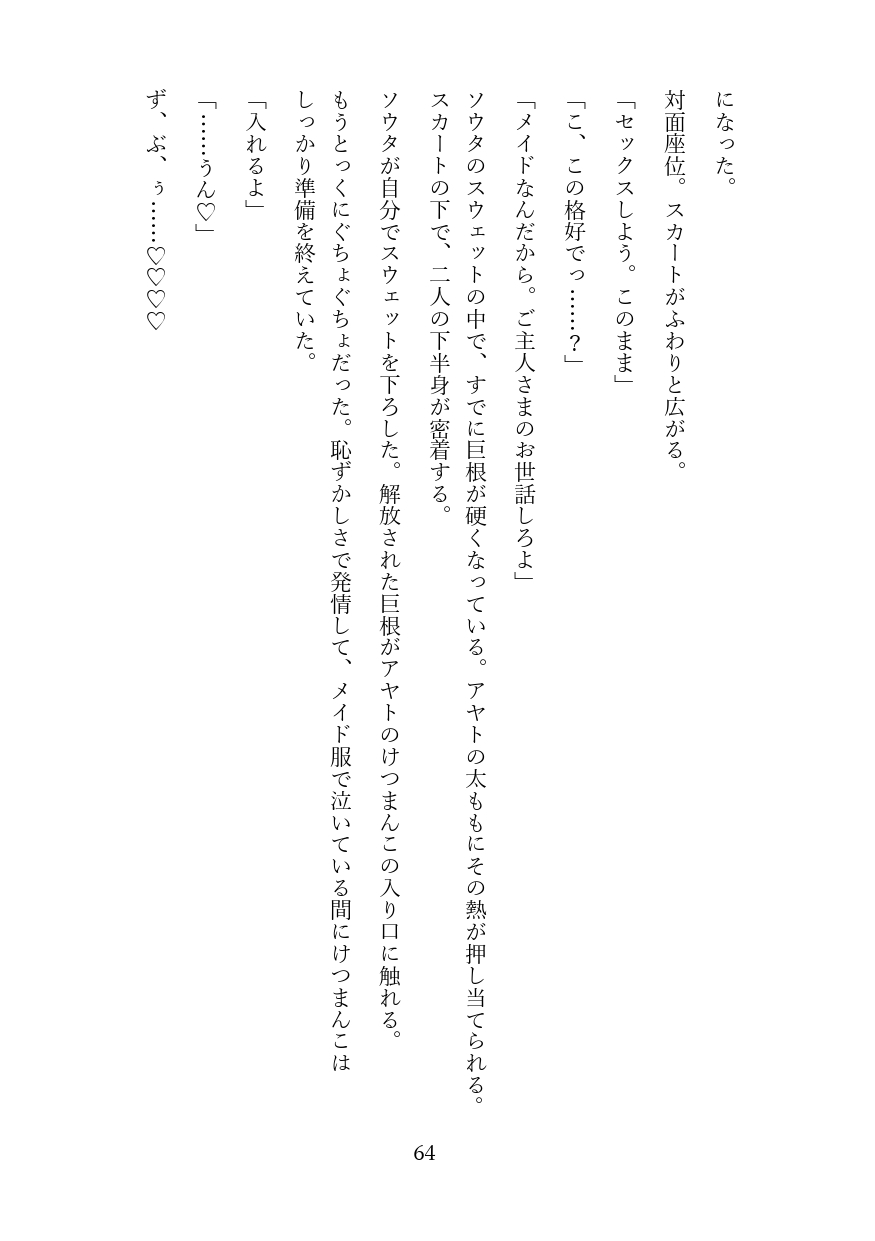 になった。
対面座位。スカートがふわりと広がる。
「セックスしよう。このまま」
「こ、この格好でっ……？」
「メイドなんだから。ご主人さまのお世話しろよ」
ソウタのスウェットの中で、すでに巨根が硬くなっている。アヤトの太ももにその熱が押し当てられる。
スカートの下で、二人の下半身が密着する。
ソウタが自分でスウェットを下ろした。解放された巨根がアヤトのけつまんこの入り口に触れる。
もうとっくにぐちょぐちょだった。恥ずかしさで発情して、メイド服で泣いている間にけつまんこは
しっかり準備を終えていた。
「入れるよ」
「……うん♡」
ず、ぶ、ぅ……♡♡♡♡
64